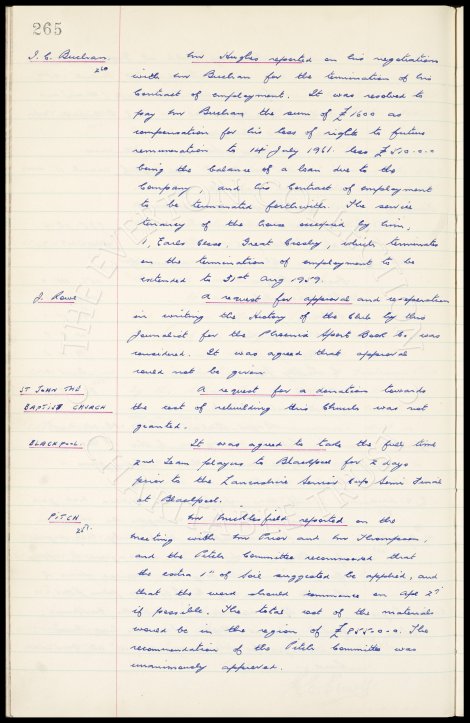 265
I. C. Buchan.
260
Mr Hughes reported on his negotiations
with Mr Buchan for the termination of his
Contract of employment. It was resolved to
pay Mr Buchan the sum of £1600 as
compensation for his loss of rights to future
remuneration to 14 July 1961. less £510-0-0
being the balance of a loan due to the
Company, and his Contract of employment
to be terminated forthwith. The service
tenancy of the house occupied by him,
1, Earls Close. Great Crosby, which terminates
on the termination of employment to be
extended to 31st Aug 1959.
J. Rowe
A request for approval and co-operation
in writing the History of the Club by this
Journalist for the Phoenix Sport Book Co. was
considered. It was agreed that approval
could not be given
ST JOHN THE
BAPTIST CHURCH
A request for a donation towards
the cost of rebuilding this Church was not
granted.
BLACKPOOL.
It was agreed to take the full time
2nd Team players to Blackpool for 2 days
prior to the Lancashire Senior Cup Semi Final
at Blackpool.
PITCH
251.
Mr Micklesfield reported on the
meeting with Mr Prior and Mr Thompson,
and the Pitch Committee recommended that
the extra 1" of Soil suggested be applied, and
that the work should commence on Apl 27
if possible. The total cost of the materials
would be in the region of £855-0-0. The
recommendation of the Pitch Committee was
unanimously approved.